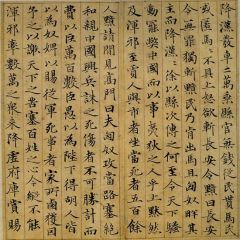 降漢發車二萬乘縣官無錢從民貰馬民
或匿馬馬不具上怒欲斬長安令黯曰長安
令無罪獨斬黯民乃肯出馬且匈奴畔其
主而降漢漢徐以縣次傳之何至令天下騷
動罷弊中國而以事夷狄之人乎上默然
及渾邪至賈人與市者坐當死者五百餘
人黯請間見高門曰夫匈奴攻當路塞絕
和親中國興兵誅之死傷者不可勝計而
費以巨萬百數臣愚以為陛下得胡人皆
以為奴婢以賜從軍死事者家所鹵獲因
予之以謝天下之苦塞百姓之心今縱不能
渾邪率數萬之衆來降虛府庫賞賜